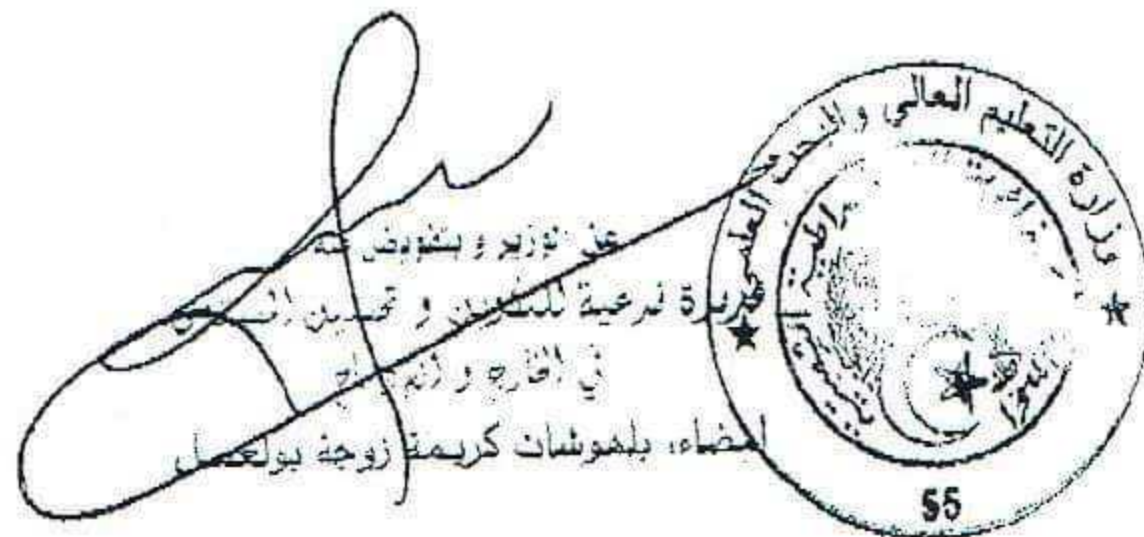 وزارة التعليم العالي و البحث العلمي
عن الوزير و بتفويض منه
مديرة فرعية للتكوين و تحسين المستوى
في الخارج و الإدماج
إمضاء، بلهوشات كريمة زوجة بولعسل
55